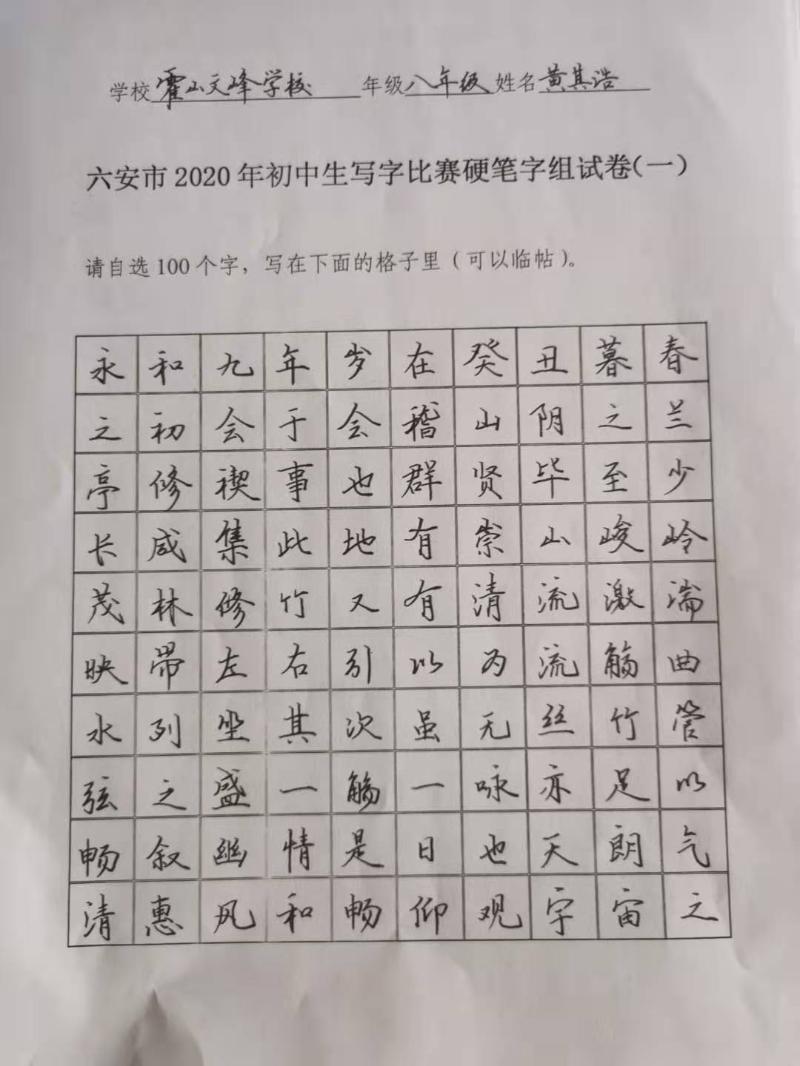 学校霍山文峰学校 年级八年级 姓名黄其浩
六安市2020年初中生写字比赛硬笔字组试卷(一)
请自选100个字，写在下面的格子里(可以临帖)。
永和九年岁在癸丑暮春
之初会于会稽山阴之兰
亭修禊事也群贤毕至少
长咸集此地有崇山峻岭
茂林修竹又有清流激湍
映带左右引以为流觞曲
水列坐其次虽无丝竹管
弦之盛一觞一咏亦足以
畅叙幽情是日也天朗气
清惠风和畅仰观宇宙之